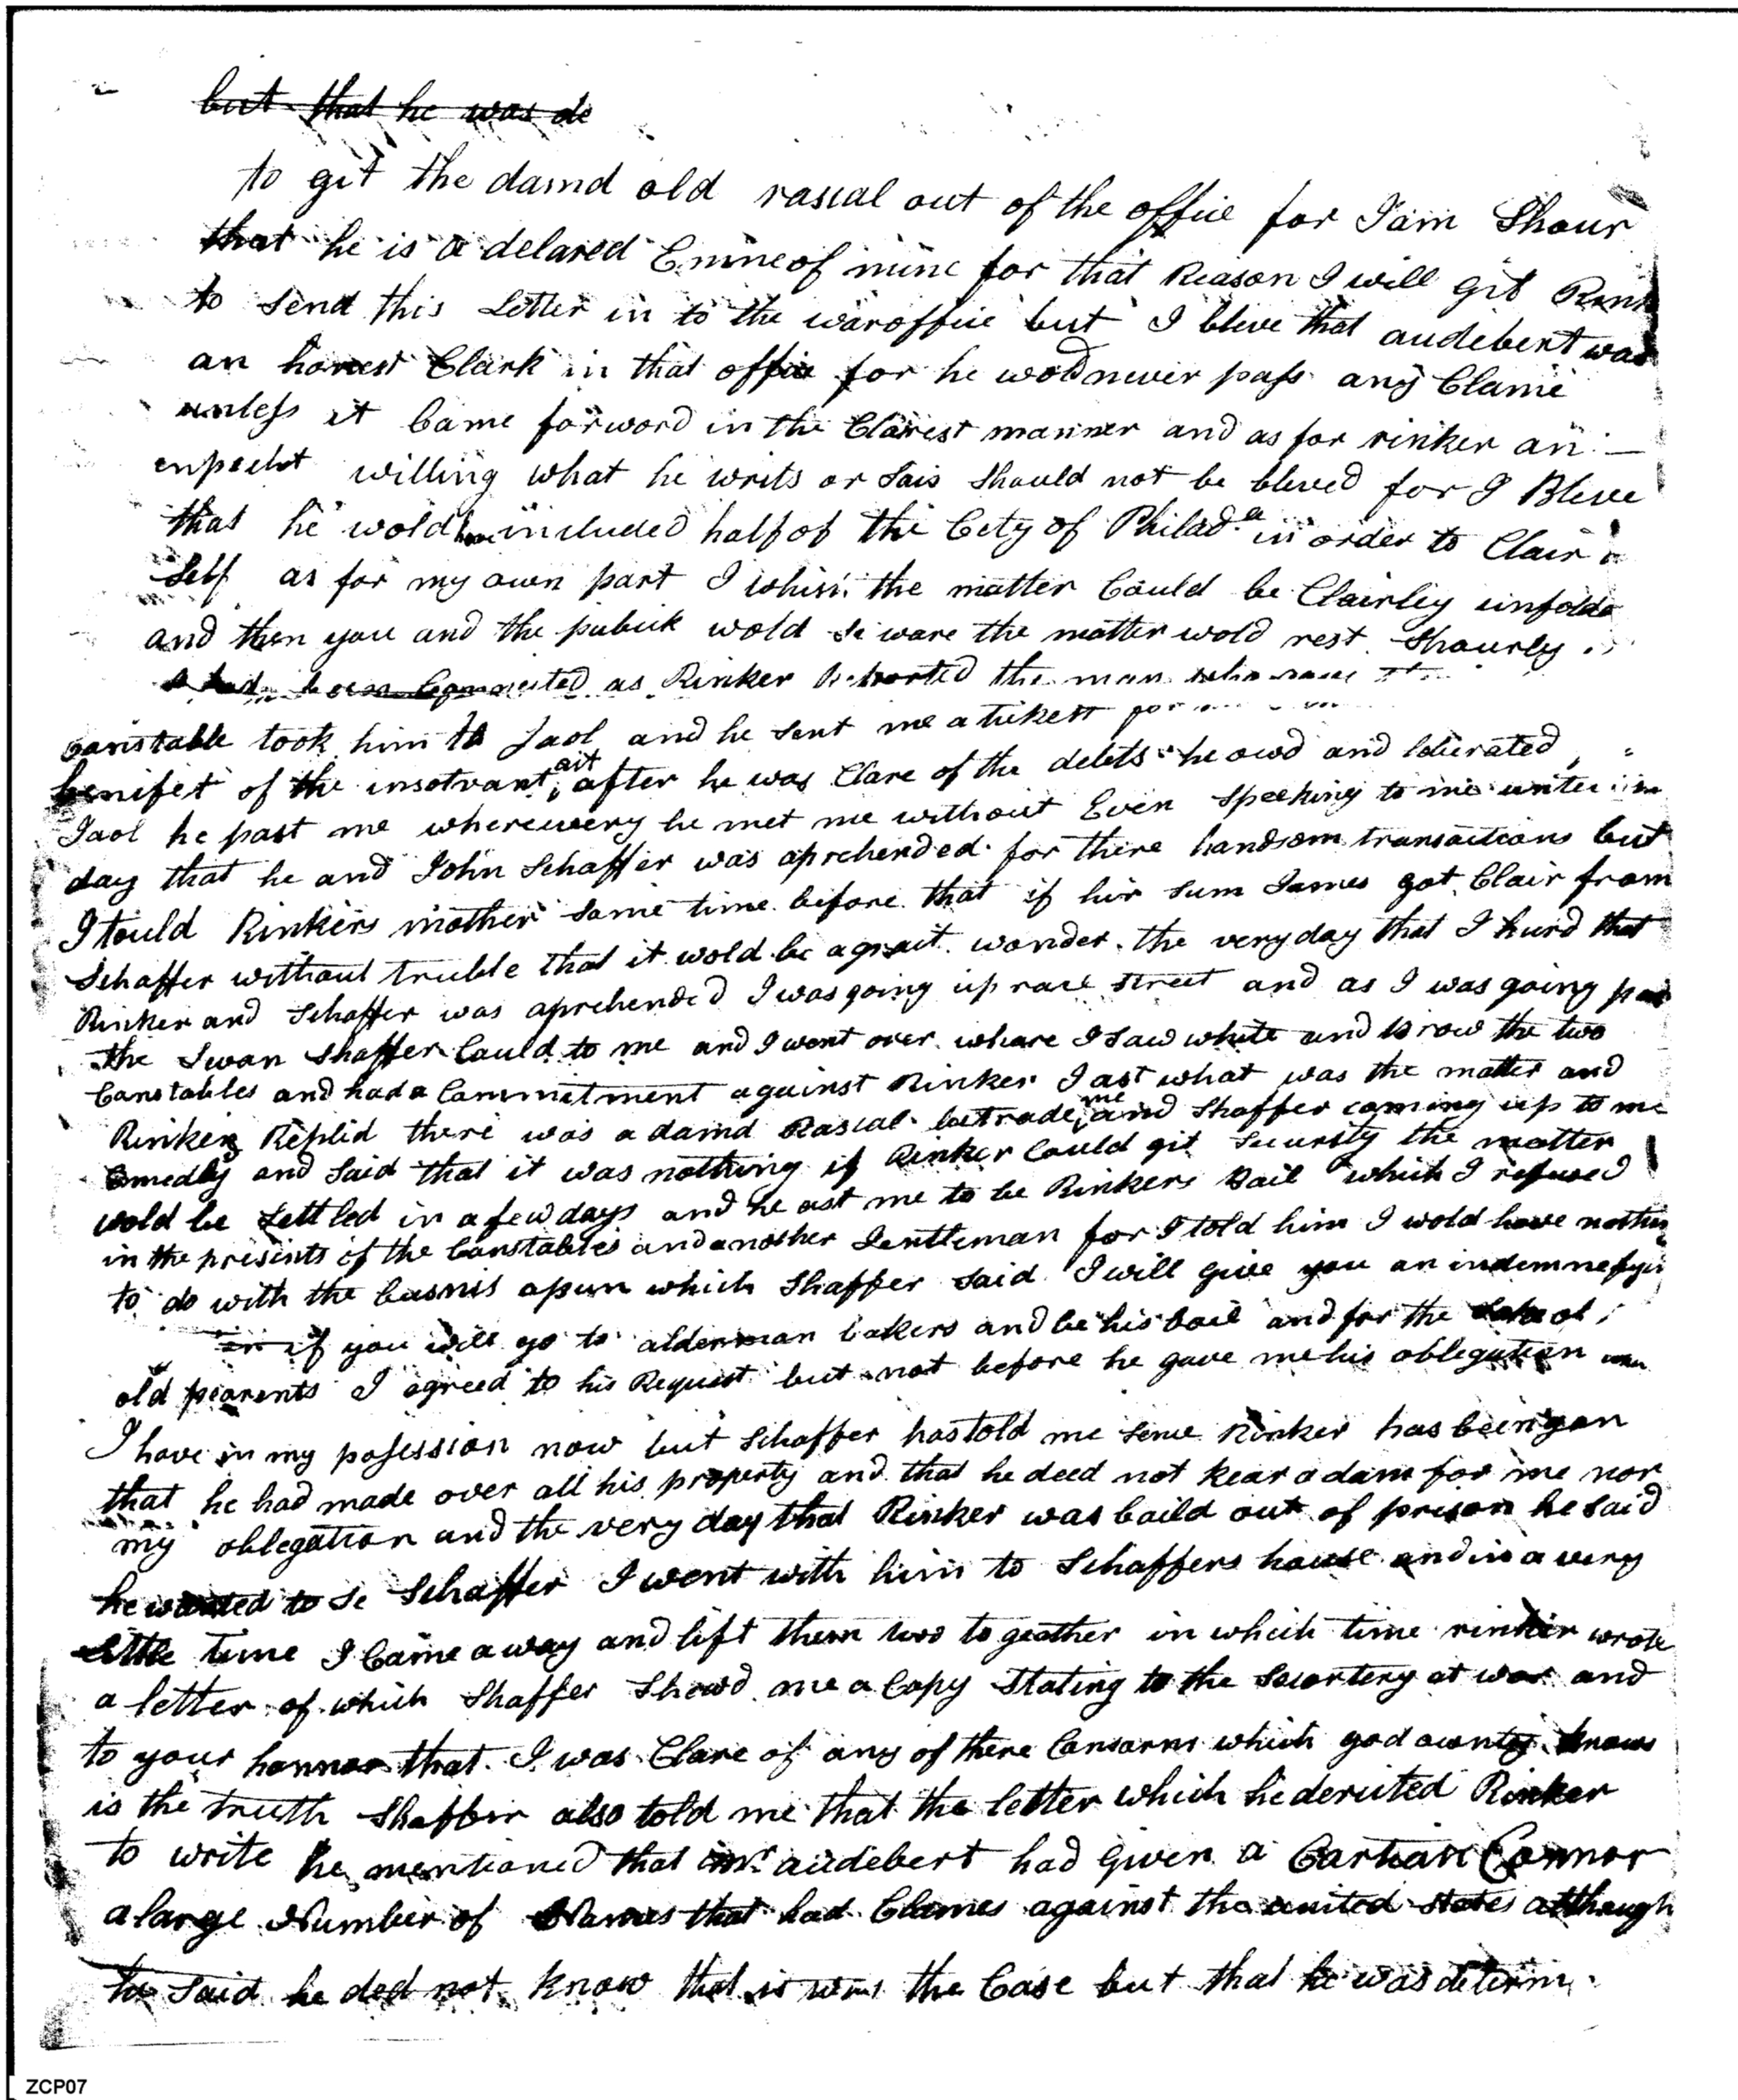 but that he was de
to git the damd old rascal out of the office for I am Shour
that he is a delared Enine of mine for that Reason I will git Rink
to Send this Letter in to the war office but I bleve that audebert was
an honest Clark in that office for he wold never pass any Clame
unless it Came forword in the Clarest manner and as for rinker an
willing what he writs or Sais Should not be bleved for I Bleve
that he wold have included half of the City of Philad.a in order to Clair
Self as for my own part I whish the matter Could be Clairley unfolde
and then you and the publick wold Se ware the matter wold rest Shourley
as Rinker Reported the man who
Constable took him to Jaol and he Sent me a tickett for
benifet of the insolvant act after he was Clare of the debts he owd and liberated
Jaol he past me whereevery he met me without Even Speeking to me untee
day that he and John Schaffer was aprehended for there handsom transactions but
I tould Rinkers mother Some time before that if hir Sum James got Clair from
Schaffer without truble that it wold be a grait wonder the very day that I hurd that
Rinker and Schaffer was aprehended I was going up race Street and as I was going pas
the Swan Shaffer Could to me and I went over whare I Saw white and brow the two
Constables and had a Commitment against Rinker I ast what was the matter and
Rinker Replid there was a damd Rascal betrade me and Shaffer coming up to me
Emedly and Said that it was nothing if Rinker Could git Security the matter
wold be Settled in a few days and he ast me to be Rinkers Bail which I refused
in the presents of the Constables and another Jentleman for I told him I wold have nothin
to do with the busnis apun which Shaffer Said I will give you an indemnefyi
if you will go to alderman bakers and be his bail and for the Sake of
old pearents I agreed to his Request but not before he gave me his oblegation
I have in my posession now but Schaffer has told me Sence Rinker has been gon
that he had made over all his property and that he deed not kear a dam for me nor
my oblegation and the very day that Rinker was baild out of prison he Said
he wanted to Se Schaffer I went with him to Schaffers house and in a very
Little time I Came away and lift them two to geather in which time rinker wrote
a letter of which Shaffer Showd me a Copy Stating to the Secortery at war and
to your honnor that I was Clare of any of there Consarns which god knows
is the truth Shaffer also told me that the letter which he deructed Rinker
to write he mentioned that mr audebert had given a Cartian Connor
a large Number of Names that had Clames against the united States although
he Said he ded not know that is was the Case but that he was determ
ZCP07